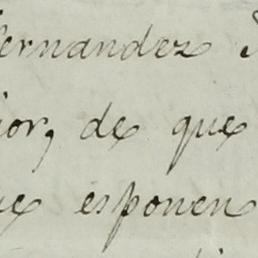 ernandez
ior, de que
ue esponen